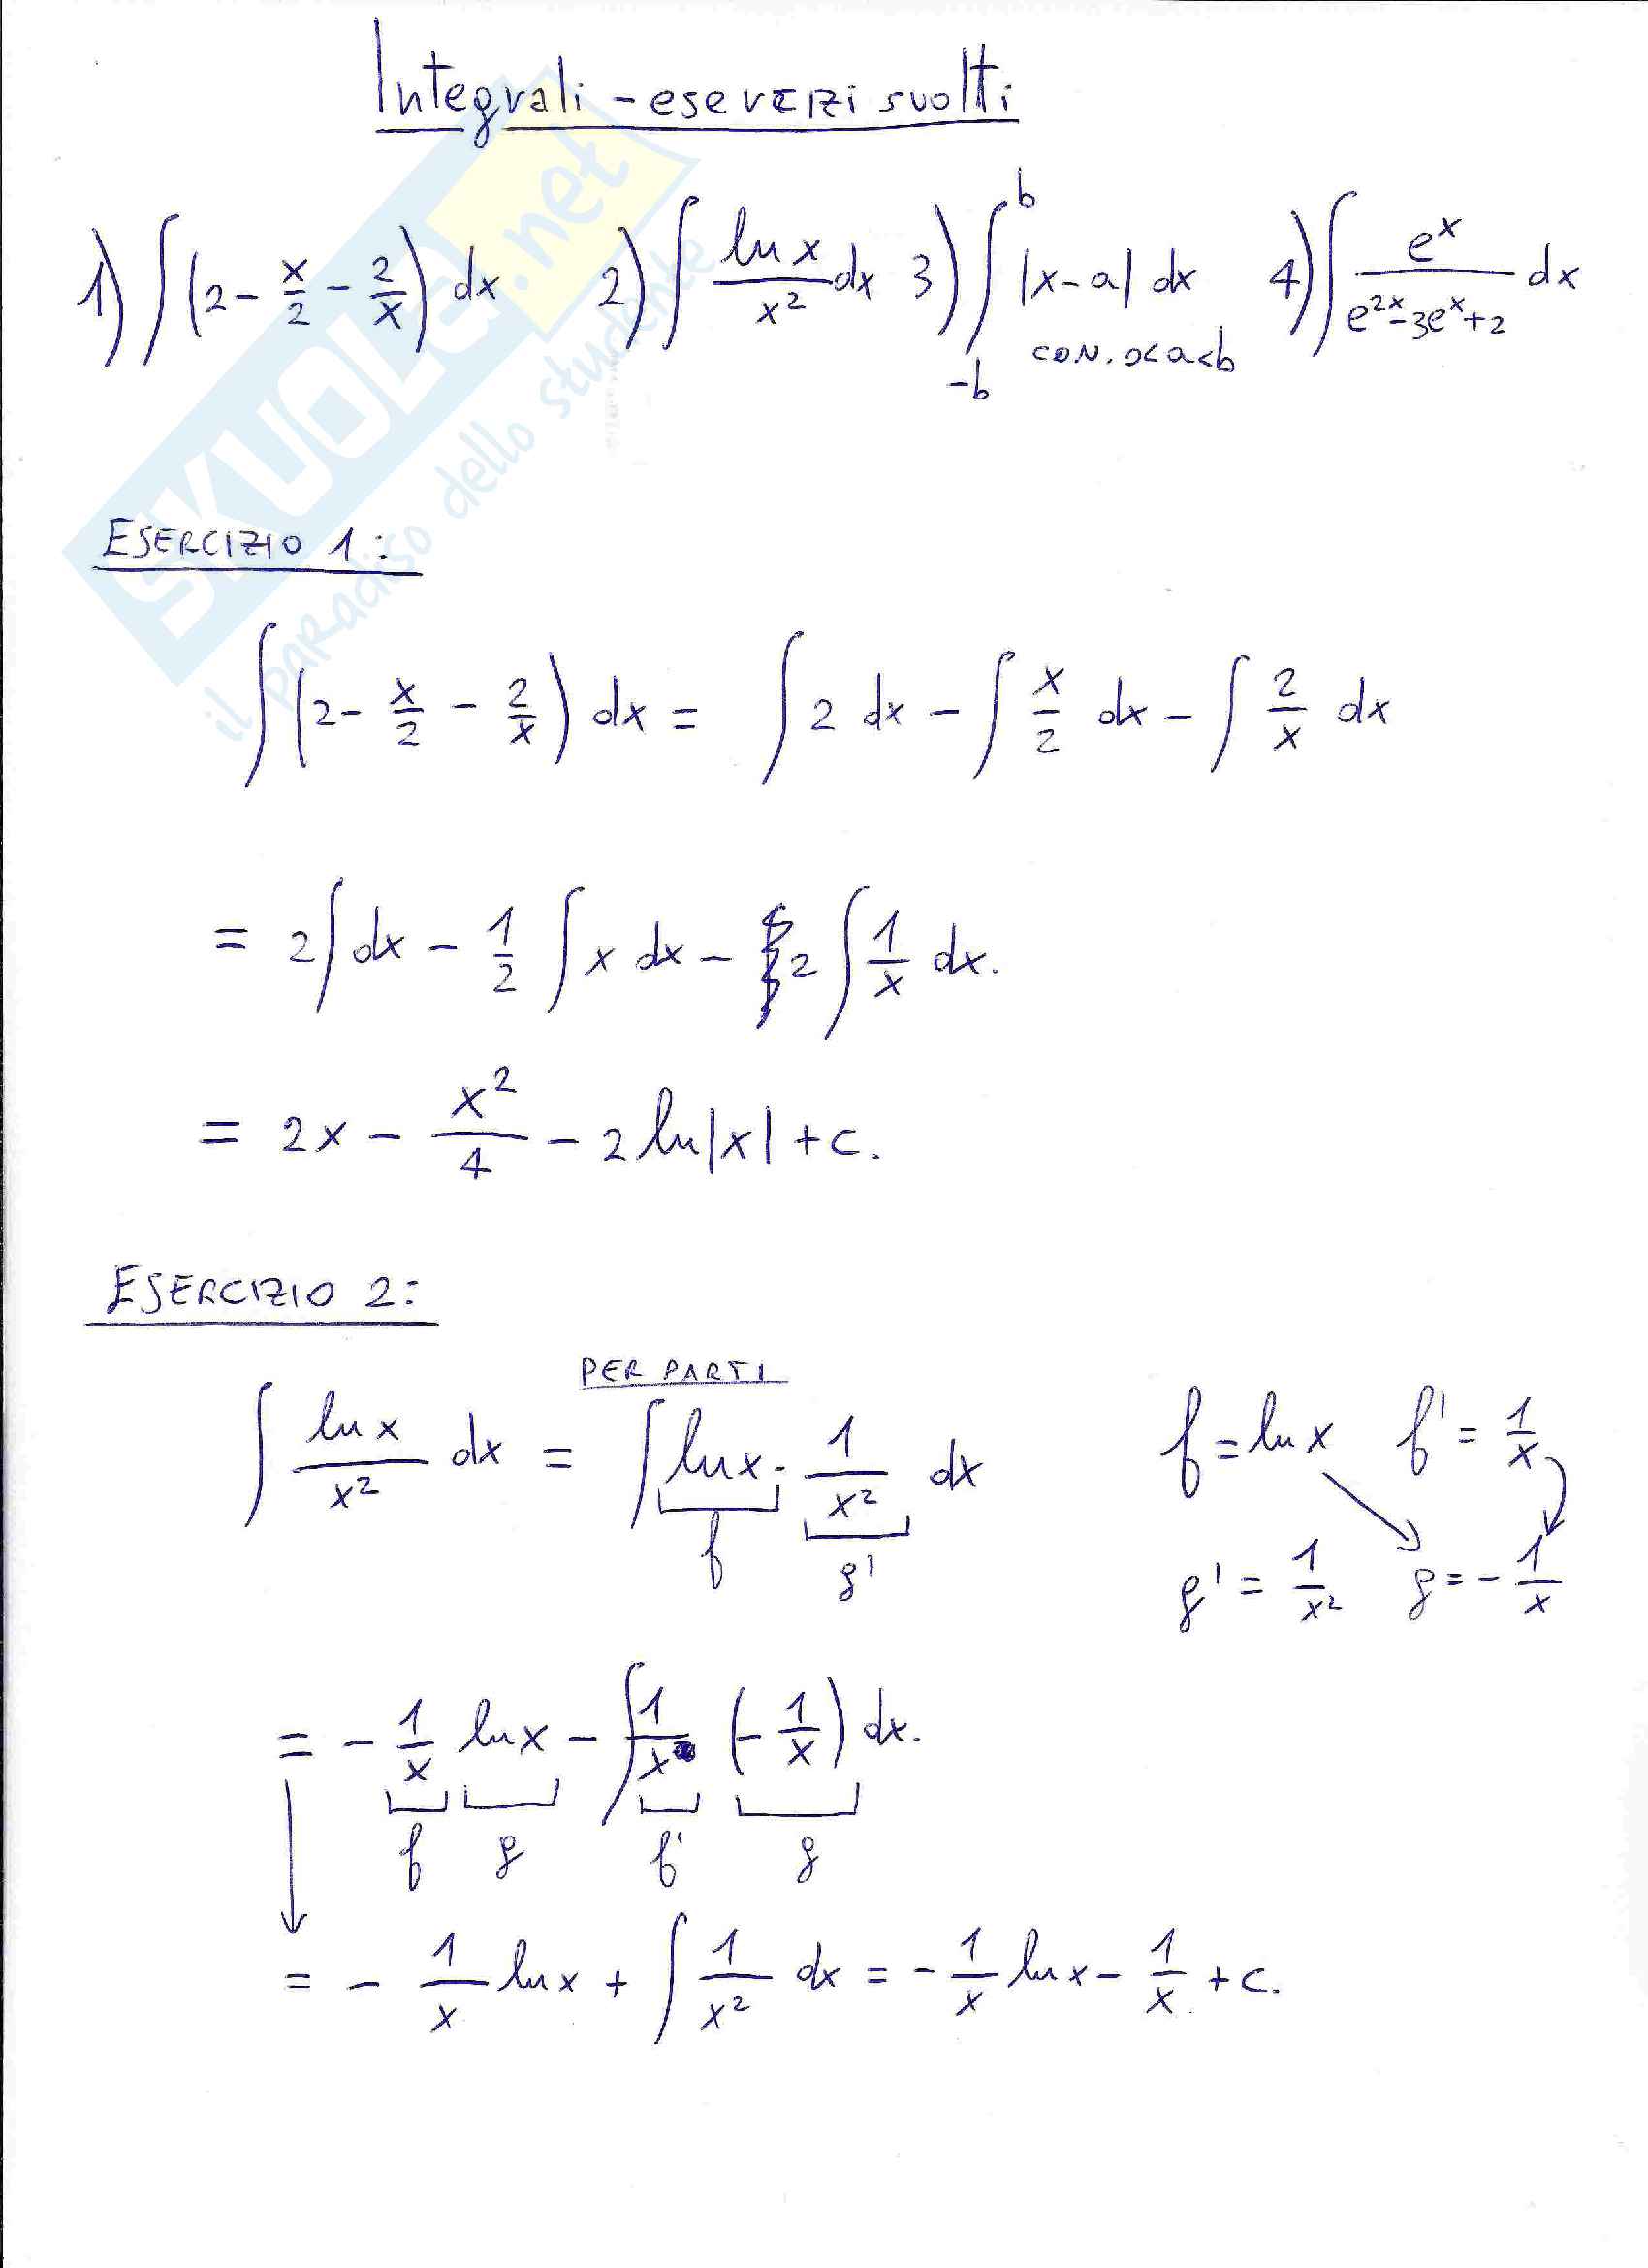 Integrali - esercizi svolti
1) ∫(2 - x/2 - 2/x) dx 2) ∫ ln x/x² dx 3) ∫_{-b}^{b} |x-a| dx 4) ∫ e^x/(e^{2x}-3e^x+2) dx
con. 0<a<b
SKUOLA.net
il paradiso dello studente
ESERCIZIO 1:
∫(2 - x/2 - 2/x) dx = ∫2 dx - ∫ x/2 dx - ∫ 2/x dx
= 2∫dx - 1/2 ∫x dx - 2∫ 1/x dx.
= 2x - x²/4 - 2 ln|x| + c.
ESERCIZIO 2:
PER PARTI
∫ ln x/x² dx = ∫ ln x · 1/x² dx f = ln x f' = 1/x
f g' g' = 1/x² g = - 1/x
= - 1/x ln x - ∫ 1/x (- 1/x) dx.
f g f' g
= - 1/x ln x + ∫ 1/x² dx = - 1/x ln x - 1/x + c.